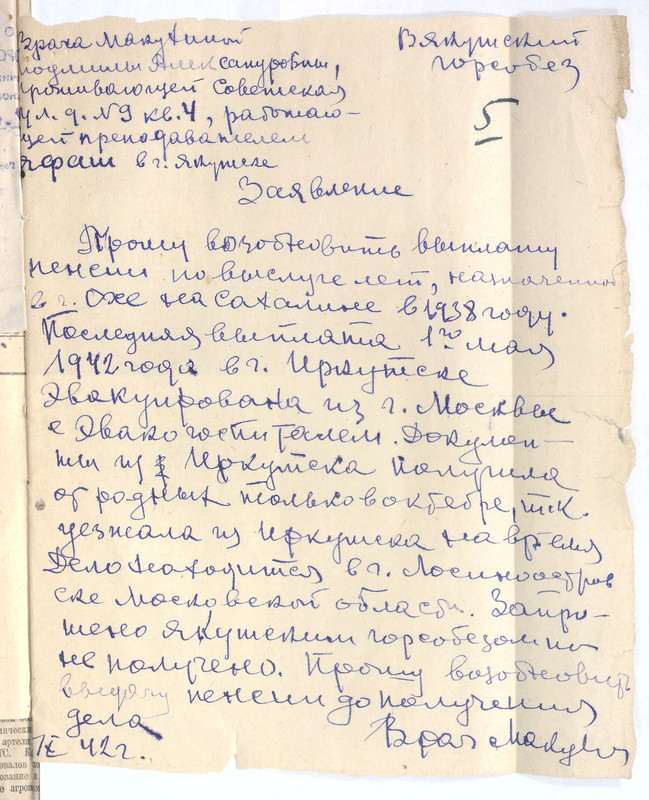 Врача Макушиной
Людмилы Александровны,
проживающей Советская
ул. д. №9 кв. 4, работаю-
щей преподавателем
в г. Якутске
В Якутский
горсобез
5
Заявление
Прошу возобновить выплату
пенсии по выслуге лет, назначенной
в г. Охе на Сахалине в 1938 году.
Последняя выплата 1го мая
1942 года в г. Иркутске
Эвакуирована из г. Москвы
с Эвакогоспиталем. Докумен-
ты из Иркутска получила
от родных только в октебре, т.к.
уезжала из Иркутска на время
Дело находится в г. Лосиноостров
ске Московской области. Запро-
шено Якутским горсобезом но
не получено. Прошу возобновить
выдачу пенсии до получения
дела
Врач
IX 42 г.